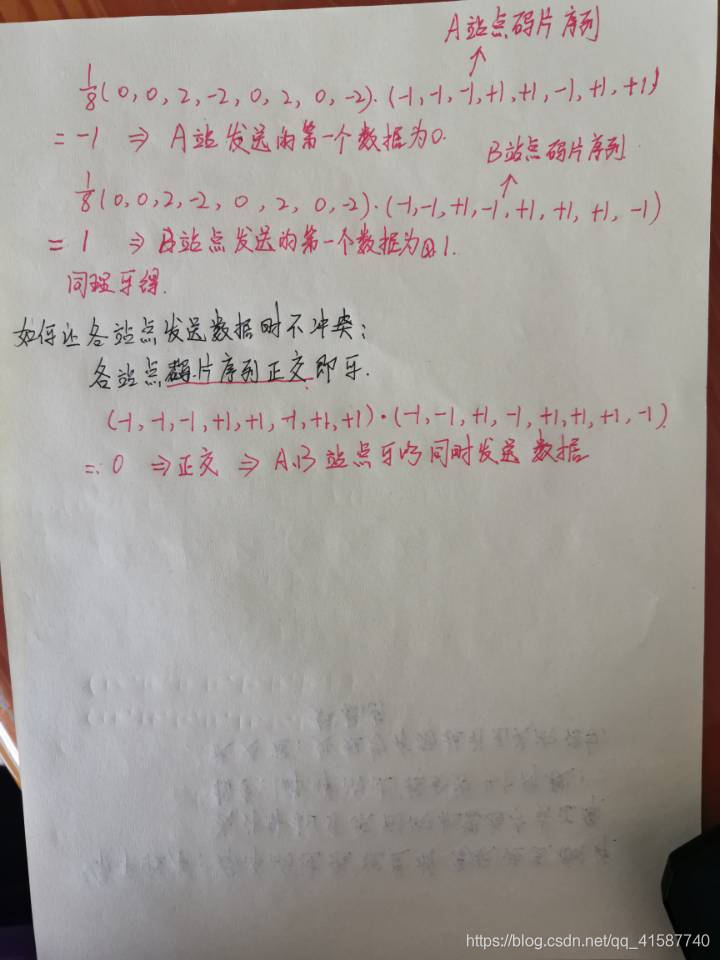 A站点码片序列
1/8(0,0,2,-2,0,2,0,-2)·(-1,-1,-1,+1,+1,-1,+1,+1)
= -1 ⇒ A站发送的第一个数据为0.
B站点码片序列
1/8(0,0,2,-2,0,2,0,-2)·(-1,-1,+1,-1,+1,+1,+1,-1)
= 1 ⇒ B站点发送的第一个数据为1.
同理可得.
如何让各站点发送数据时不冲突:
各站点码片序列正交即可.
(-1,-1,-1,+1,+1,-1,+1,+1)·(-1,-1,+1,-1,+1,+1,+1,-1)
= 0 ⇒正交 ⇒ A,B站点可以同时发送数据
https://blog.csdn.net/qq_41587740